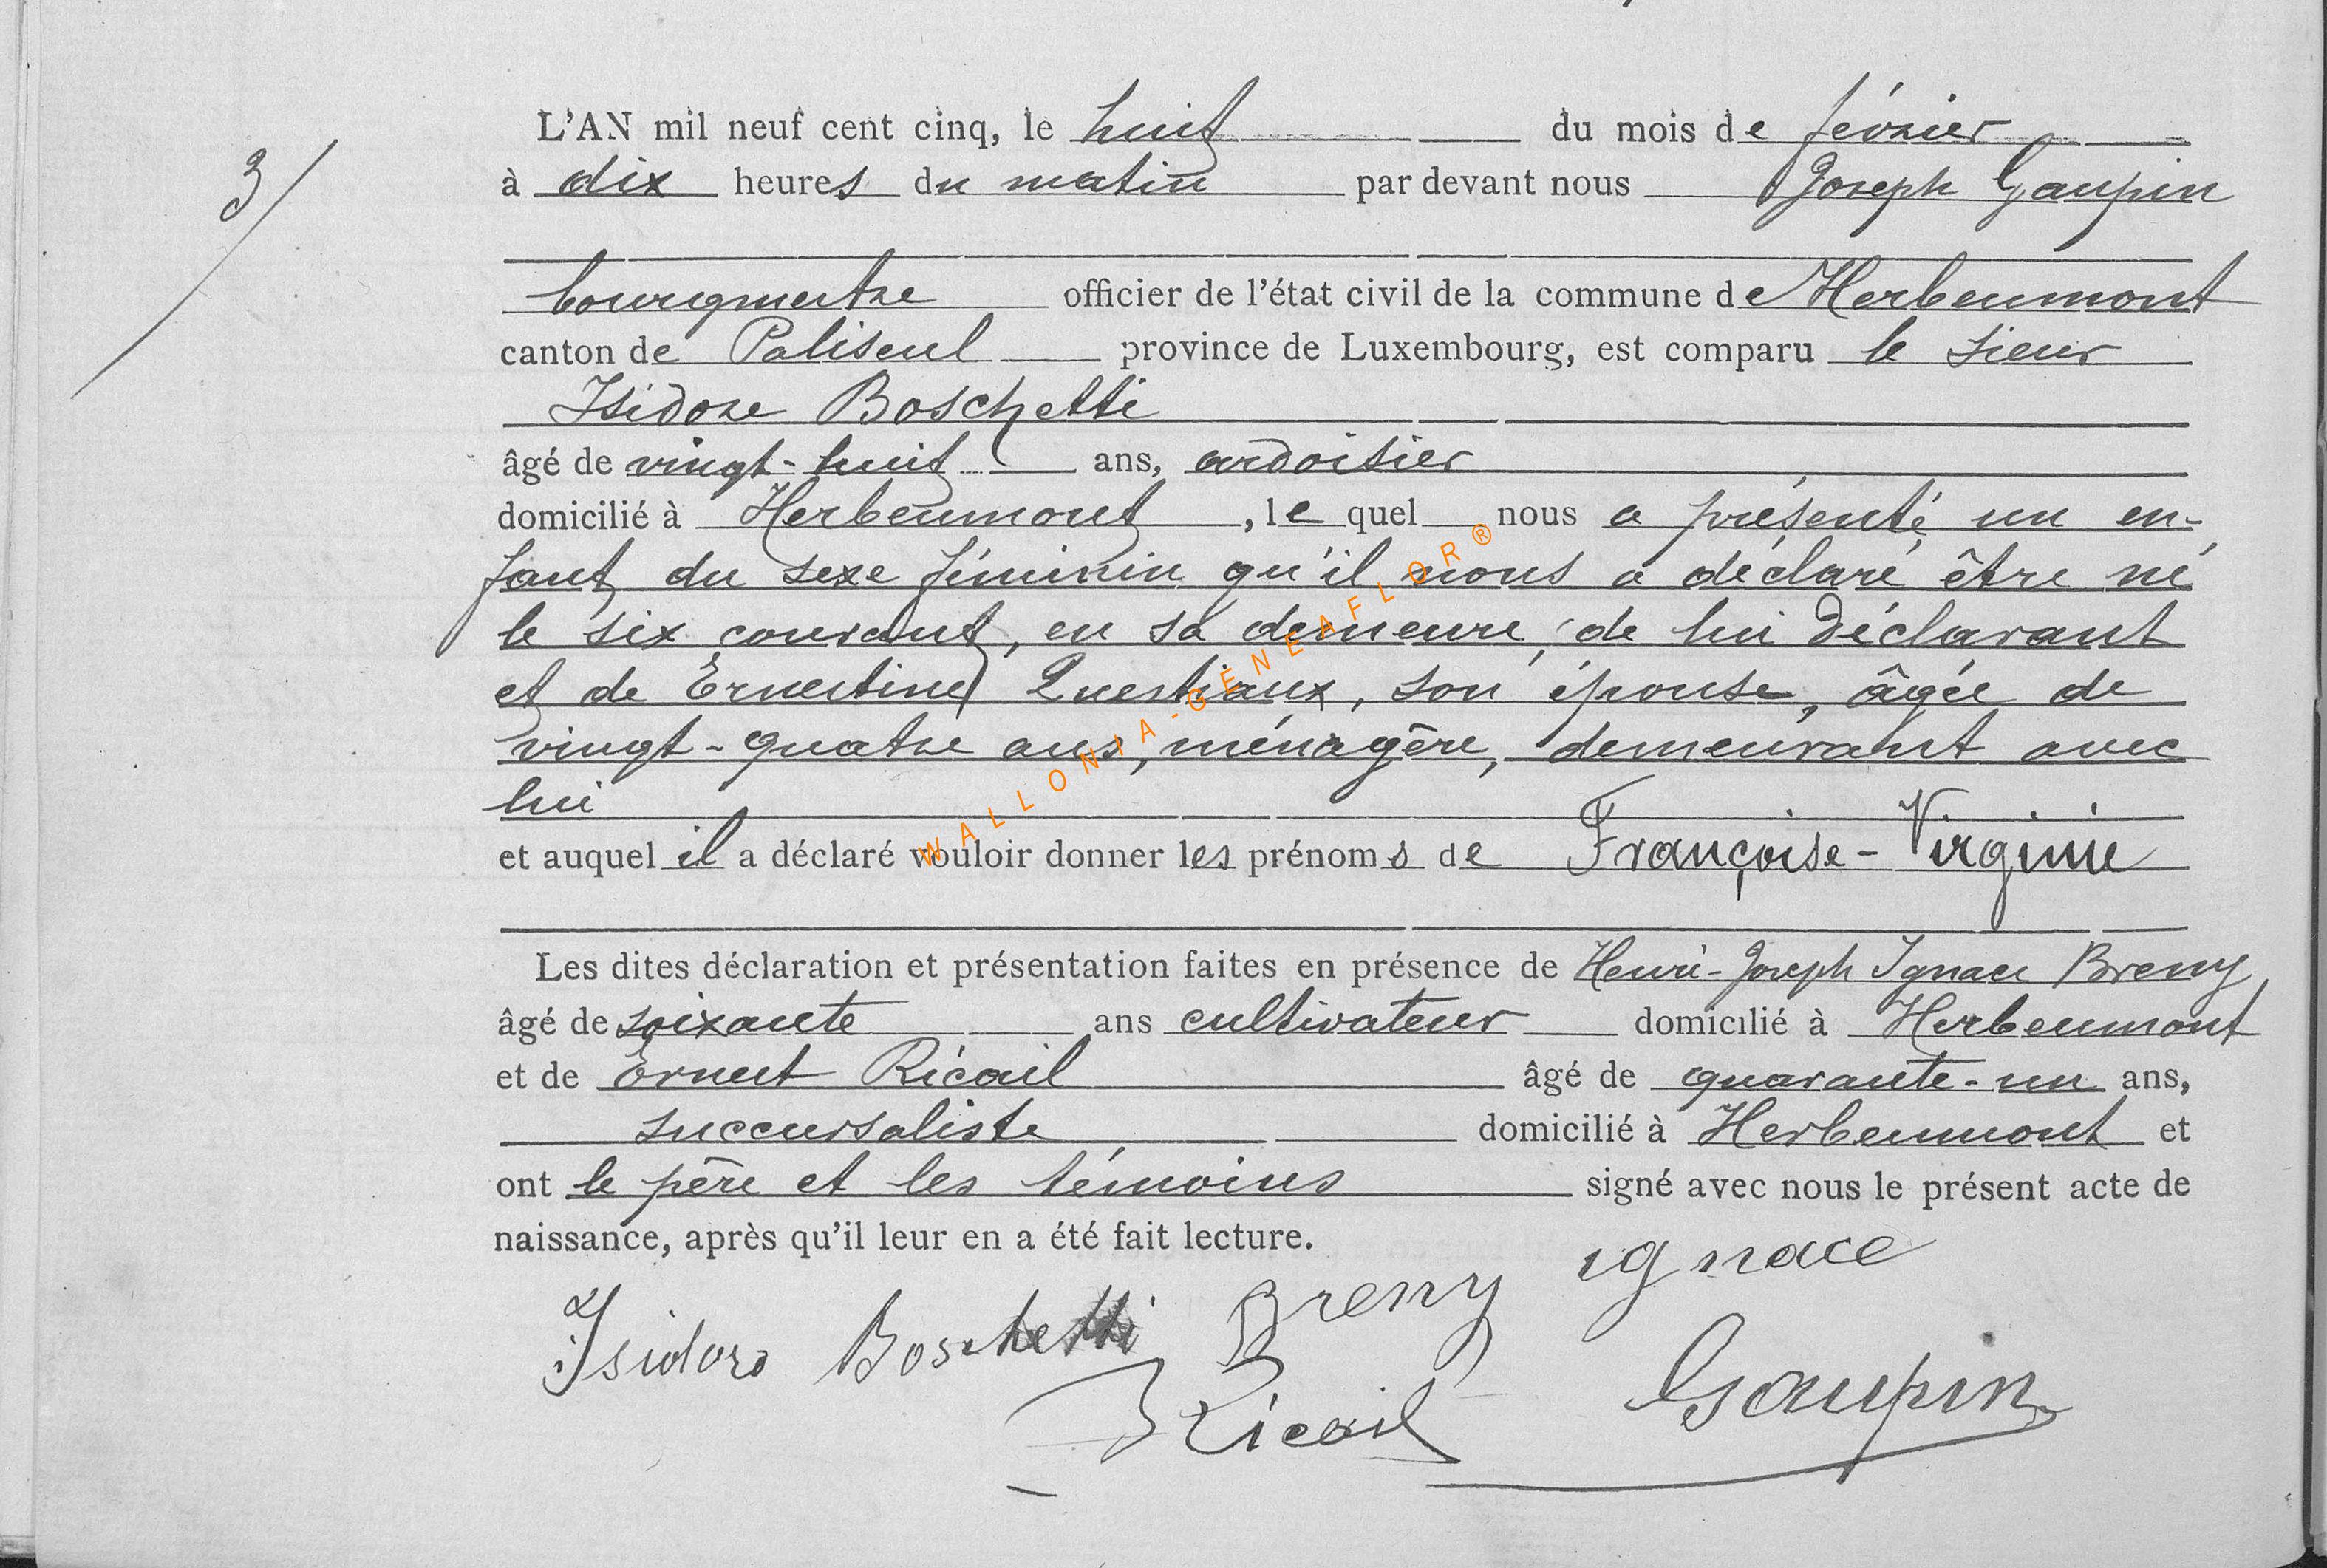 3/
L'AN mil neuf cent cinq, le huit du mois de février
à dix heures du matin par devant nous Joseph Gaupin
bourgmestre officier de l'état civil de la commune de Herbeumont
canton de Paliseul province de Luxembourg, est comparu le sieur
Isidore Boschetti
âgé de vingt-huit ans, ardoisier
domicilié à Herbeumont, le quel nous a présenté un en-
fant du sexe féminin qu'il nous a déclaré être né
le six courant, en sa demeure, de lui déclarant
et de Ernestine Questiaux, son épouse, âgée de
vingt-quatre ans, ménagère, demeurant avec
lui
et auquel il a déclaré vouloir donner les prénoms de Françoise-Virginie
Les dites déclaration et présentation faites en présence de Henri-Joseph Ignace Breny
âgé de soixante ans cultivateur domicilié à Herbeumont
et de Ernest Ricail âgé de quarante-un ans,
succursaliste domicilié à Herbeumont et
ont le père et les témoins signé avec nous le présent acte de
naissance, après qu'il leur en a été fait lecture.
Isidoro Boschetti Breny ignace
Ricail Gaupin
WALLONIA-GENEAFLOR®